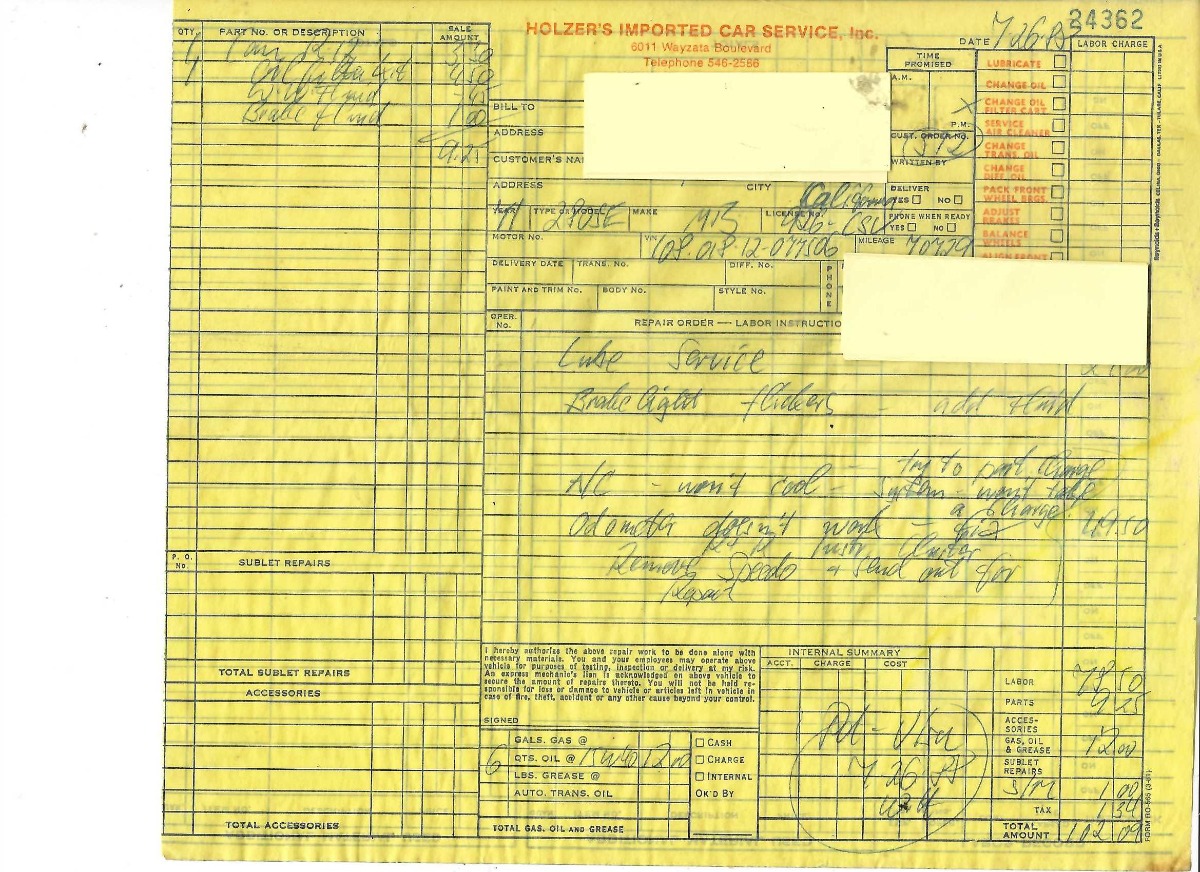 24362
HOLZER'S IMPORTED CAR SERVICE, Inc.
6011 Wayzata Boulevard
Telephone 546-2566
DATE 7-26-85
QTY. PART NO. OR DESCRIPTION SALE AMOUNT
1 Can R-12 3 50
1 Oil filter kit 4 50
W.W. fluid
Brake fluid 1 00
9.25
BILL TO
ADDRESS
CUSTOMER'S NA
ADDRESS CITY
TIME PROMISED
A.M.
P.M.
CUST. ORDER NO.
WRITTEN BY
DELIVER
YES NO
PHONE WHEN READY
YES NO
LABOR CHARGE
LUBRICATE
CHANGE OIL
X CHANGE OIL FILTER CART.
SERVICE AIR CLEANER
CHANGE TRANS. OIL
CHANGE DIFF. OIL
PACK FRONT WHEEL BRGS.
ADJUST BRAKES
BALANCE WHEELS
ALIGN FRONT
California
YEAR 71 TYPE OR MODEL 280SE MAKE MB LICENSE NO. 426-CSU
MOTOR NO. VIN 108.018-12-077506 MILEAGE 70729
DELIVERY DATE TRANS. NO. DIFF. NO. PHONE
PAINT AND TRIM NO. BODY NO. STYLE NO.
OPER. NO. REPAIR ORDER — LABOR INSTRUCTIO
Lube Service
Brake light flickers - add fluid
A/C - won't cool - try to part charge
system - won't take
a charge
Odometer doesn't work - 49.50
R+R Instr Cluster
Remove Speedo + Send out for
Repair
P. O. No. SUBLET REPAIRS
TOTAL SUBLET REPAIRS
ACCESSORIES
TOTAL ACCESSORIES
I hereby authorize the above repair work to be done along with
necessary materials. You and your employees may operate above
vehicle for purposes of testing, inspection or delivery at my risk.
An express mechanic's lien is acknowledged on above vehicle to
secure the amount of repairs thereto. You will not be held re-
sponsible for loss or damage to vehicle or articles left in vehicle in
case of fire, theft, accident or any other cause beyond your control.
SIGNED
GALS. GAS @
6 QTS. OIL @ 15W40 12 00
LBS. GREASE @
AUTO. TRANS. OIL
TOTAL GAS, OIL AND GREASE
CASH
CHARGE
INTERNAL
OK'D BY
INTERNAL SUMMARY
ACCT. CHARGE COST
7 26 85
LABOR 78 50
PARTS 9 25
ACCES-SORIES
GAS, OIL & GREASE 12 00
SUBLET REPAIRS
S/M 1 00
TAX 1 34
TOTAL AMOUNT 102 09